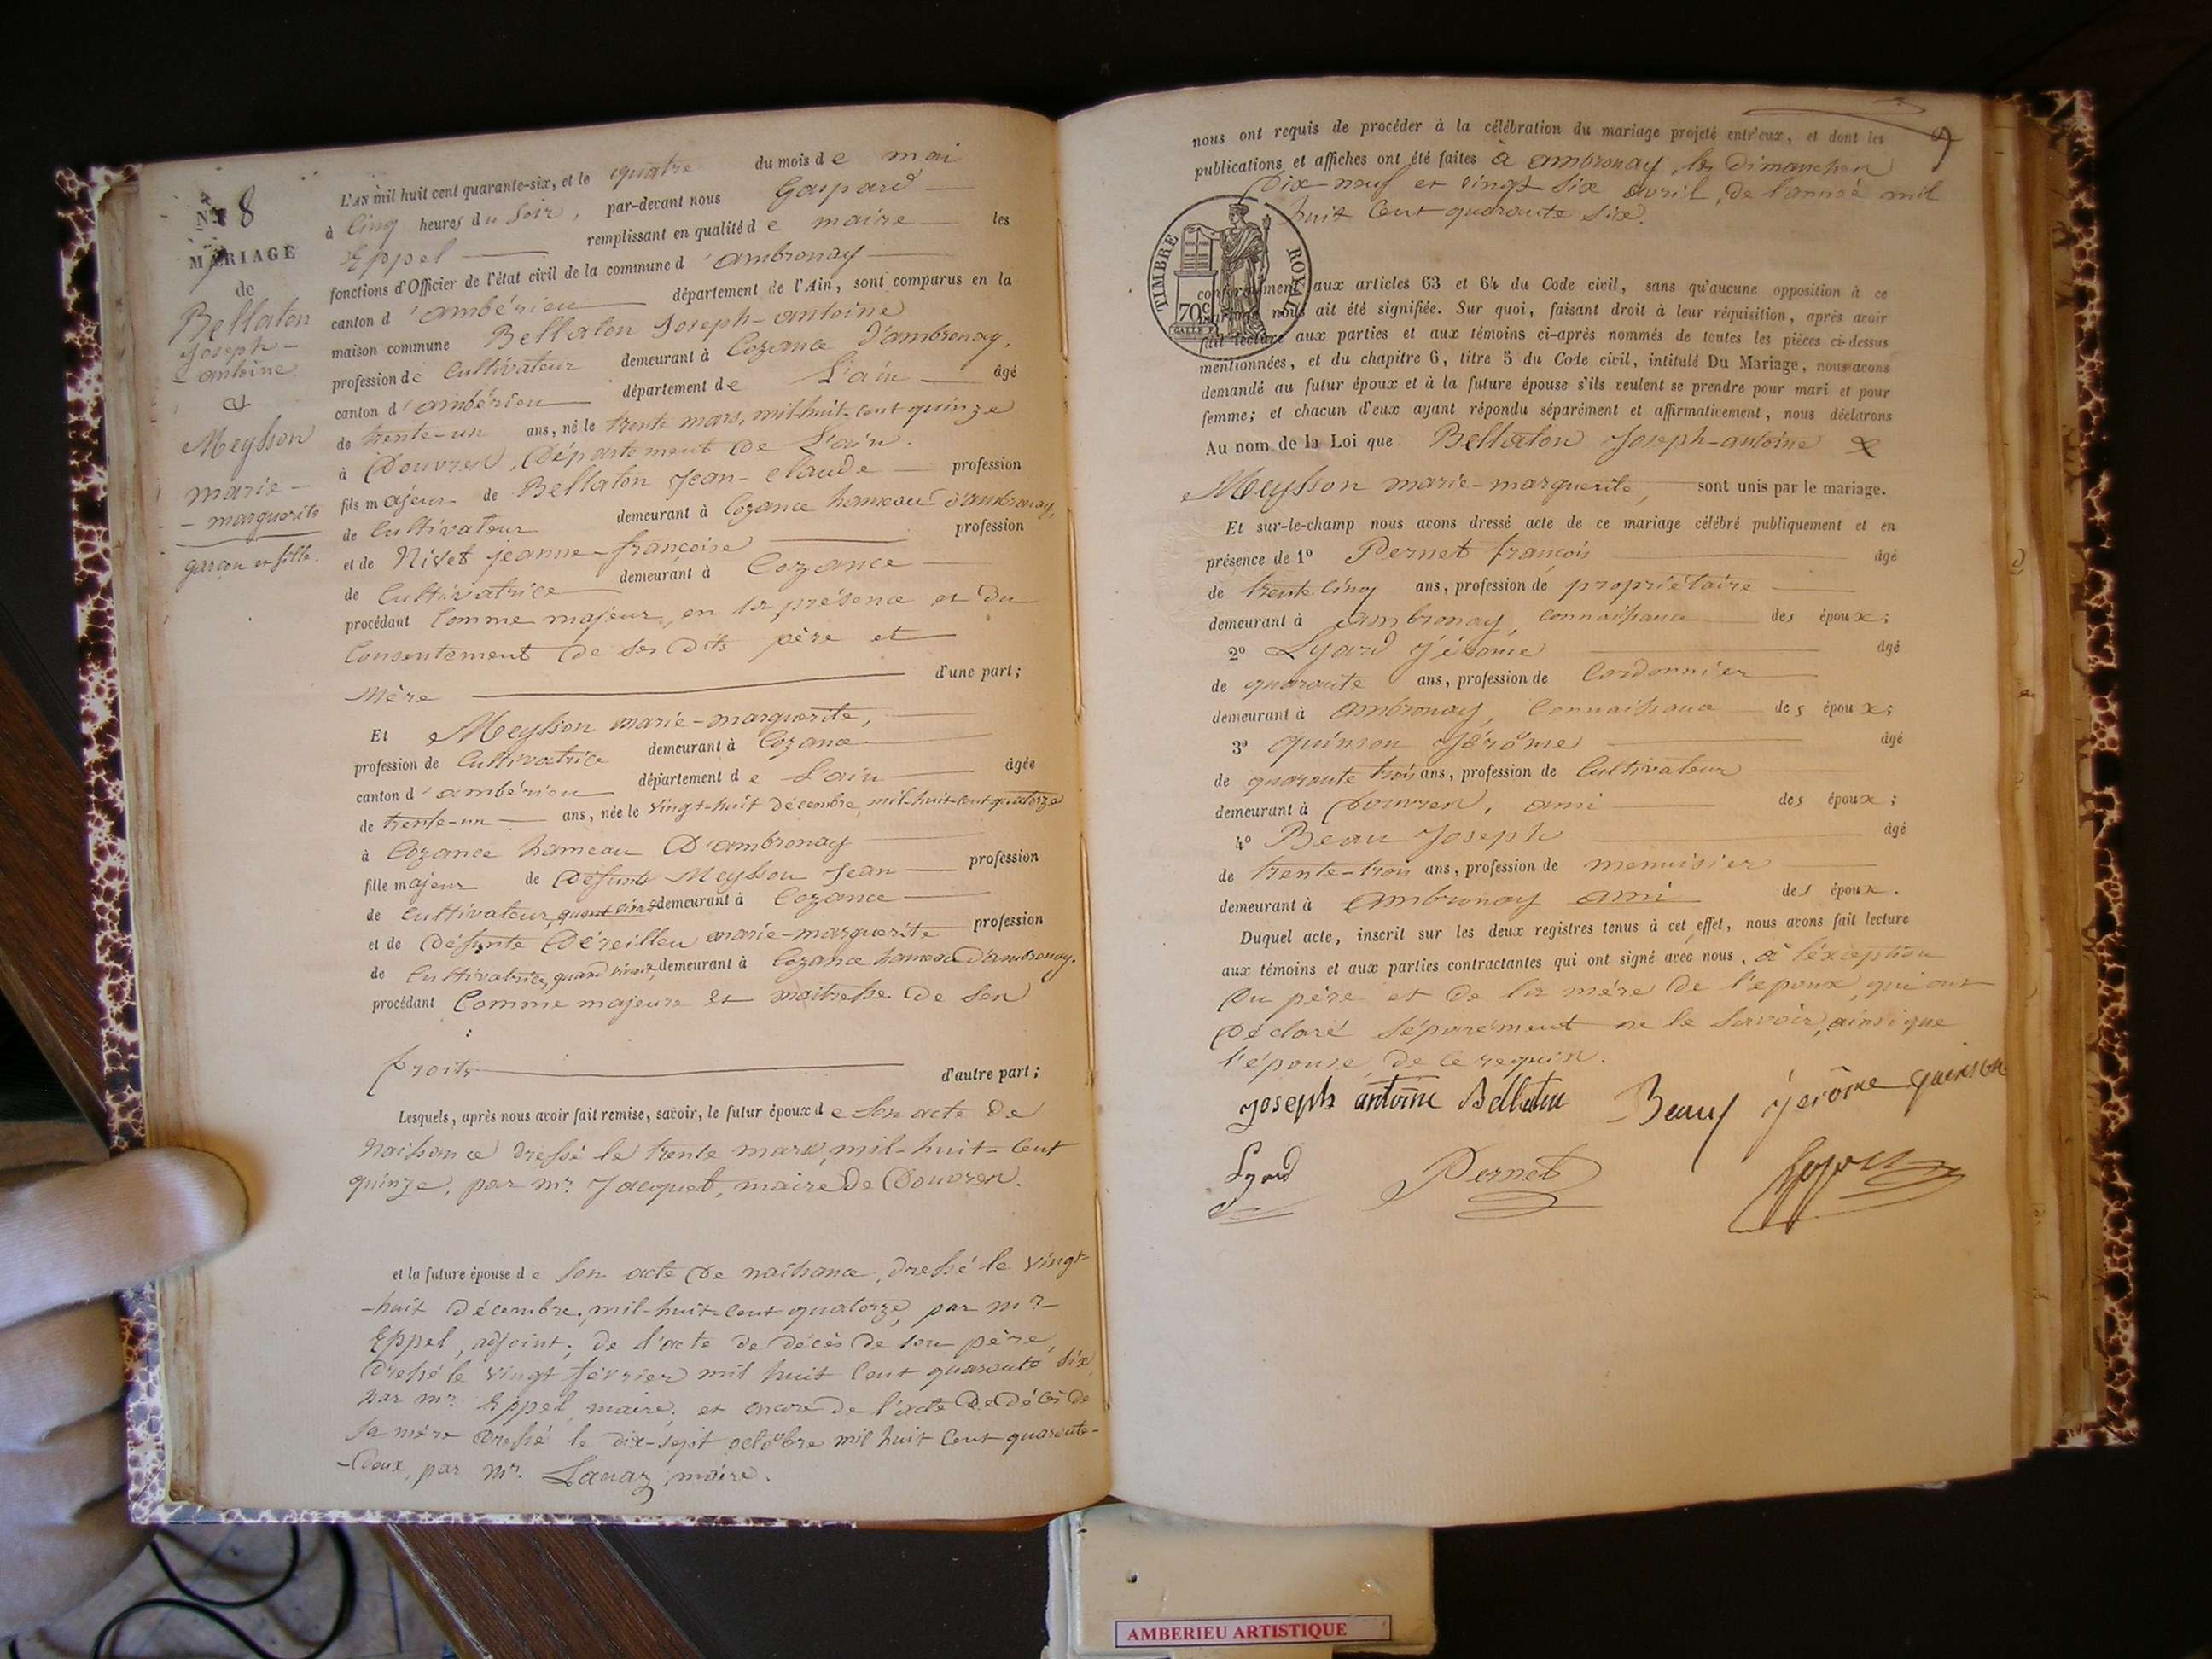 N° 8
MARIAGE
de
Bellaton
Joseph-
antoine
et
Meysson
marie-
-marguerite
garçon et fille.
L'AN mil huit cent quarante-six, et le quatre du mois de mai
à cinq heures du soir, par-devant nous Gaspard
Eppel remplissant en qualité de maire les
fonctions d'Officier de l'état civil de la commune d'ambronay
canton d'ambérieu département de l'Ain, sont comparus en la
maison commune Bellaton Joseph-antoine
profession de cultivateur demeurant à Cozance d'ambronay,
canton d'ambérieu département de L'ain âgé
de trente-un ans, né le trente mars, mil-huit-cent quinze
à Douvres, Département de L'ain.
fils majeur de Bellaton Jean-claude profession
de cultivateur demeurant à Cozance hameau d'ambronay,
et de Nivet jeanne-françoise profession
de cultivatrice demeurant à Cozance
procédant comme majeur, en la présence et du
consentement de ses dits père et
mère d'une part;
Et Meysson marie-marguerite,
profession de cultivatrice demeurant à Cozance
canton d'ambérieu département de L'ain âgée
de trente-un ans, née le vingt-huit décembre, mil-huit-cent quatorze
à Cozance hameau D'ambronay
fille majeur de défunt Meysson Jean profession
de cultivateur, demeurant à Cozance
et de défunte Déreilleu marie-marguerite profession
de cultivatrice, quand vivait, demeurant à Cozance hameau D'ambronay.
procédant comme majeure et maitresse de ses
Droits d'autre part;
Lesquels, après nous avoir fait remise, savoir, le futur époux de son acte de
naissance dressé le trente mars, mil-huit-cent
quinze, par mr. Jacquet, maire de Douvres.
et la future épouse de son acte de naissance, dressé le vingt-
-huit décembre, mil-huit-cent quatorze, par mr-
Eppel, adjoint; de l'acte de décès de son père,
dressé le vingt février mil huit cent quarante six,
par mr. Eppel, maire; et encore de l'acte de décès de
sa mère dressé le dix-sept octobre mil huit cent quarante-
-deux, par mr. maire.
nous ont requis de procéder à la célébration du mariage projeté entr'eux, et dont les
publications et affiches ont été faites à ambronay, les dimanches
dix-neuf et vingt-six avril, de l'année mil
huit cent quarante six.
TIMBRE ROYAL
70c
conformément aux articles 63 et 64 du Code civil, sans qu'aucune opposition à ce
mariage nous ait été signifiée. Sur quoi, faisant droit à leur réquisition, après avoir
fait lecture aux parties et aux témoins ci-après nommés de toutes les pièces ci-dessus
mentionnées, et du chapitre 6, titre 5 du Code civil, intitulé Du Mariage, nous avons
demandé au futur époux et à la future épouse s'ils veulent se prendre pour mari et pour
femme; et chacun d'eux ayant répondu séparément et affirmativement, nous déclarons
Au nom de la Loi que Bellaton Joseph-antoine et
Meysson marie-marguerite, sont unis par le mariage.
Et sur-le-champ nous avons dressé acte de ce mariage célébré publiquement et en
présence de 1° Pernet françois âgé
de trente cinq ans, profession de propriétaire
demeurant à ambronay, connaissance des époux;
2° Lyard Jérome âgé
de quarante ans, profession de Cordonnier
demeurant à ambronay, connaissance des époux;
3° quinson Jérôme âgé
de quarante trois ans, profession de cultivateur
demeurant à Douvres, ami des époux;
4° Beau Joseph âgé
de trente-trois ans, profession de menuisier
demeurant à ambronay ami des époux.
Duquel acte, inscrit sur les deux registres tenus à cet effet, nous avons fait lecture
aux témoins et aux parties contractantes qui ont signé avec nous, à l'exception
du père et de la mère de l'époux, qui ont
déclaré séparément ne le savoir, ainsi que
l'épouse, de ce requis.
joseph antoine Bellaton Beau jerôme quinson
Lyard Pernet
AMBERIEU ARTISTIQUE